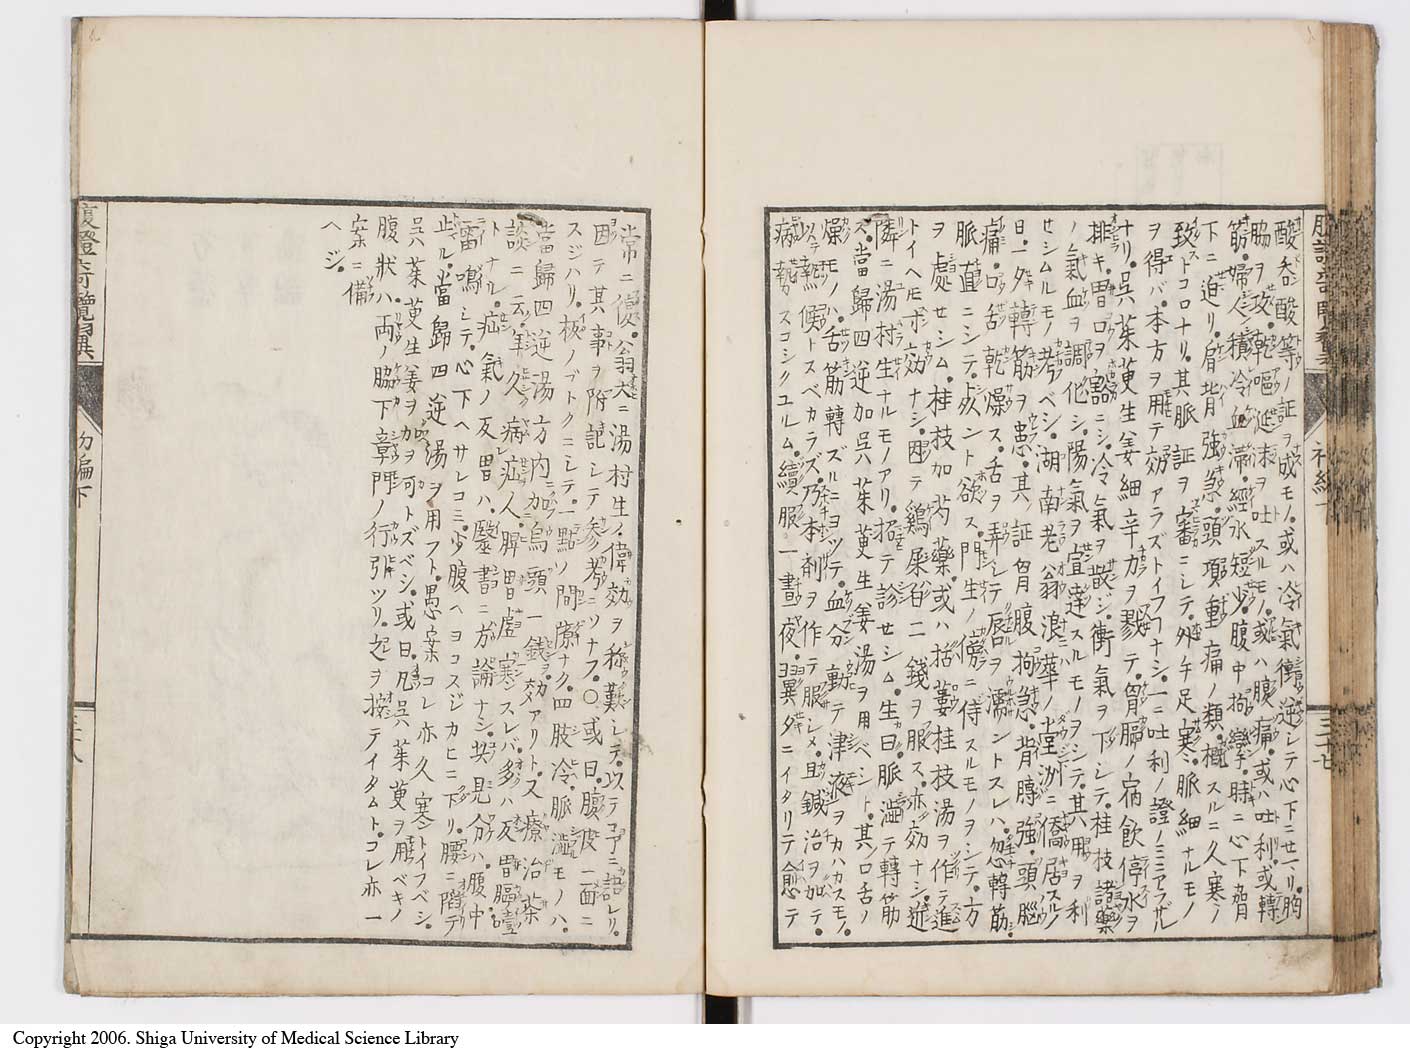 酸呑酸等ノ証ヲ成モノ或ハ冷氣衝逆シテ心下ニせマリ胸
脇ヲ攻乾嘔涎沫ヲ吐スルモノ或ハ腹痛或ハ吐利或轉
筋婦人積冷血滞經水短少腹中拘攣時ニ心下脅
下ニ迫リ肩背強急頭項重痛ノ類概スルニ久寒ノ
致ストコロナリ其脈証ヲ審ニシテ外手足寒脈細ナルモノ
ヲ得バ本方ヲ用テ効アラズトイフコナシ一ニ吐利ノ證ノミニアラザル
ナリ吳茱萸生姜細辛力ヲ戮テ胃膈ノ宿飲停水ヲ
排キ胃口ヲ豁ニシ冷氣ヲ散ジ衝氣ヲ下シテ桂枝諸藥
ノ氣血ヲ調化シ陽氣ヲ宣達スルモノヲシテ其用ヲ利
セシムルモノ考ベシ湖南老翁浪華ノ堂洲ニ僑居スルノ
日一夕轉筋ヲ患其証胃腹拘急背膊強頭腦
痛口舌乾燥ス舌ヲ弄シテ唇ヲ濡ントスレハ忽轉筋
脈置ニシテ歺ント欲ス門生ノ傍ニ侍スルモノヲシテ方
ヲ處セシム桂枝加芍藥或ハ括蔞桂枝湯ヲ作テ進
トイヘモ效ナシ困テ鷄屎白二錢ヲ服ス亦効ナシ逰
隣ニ湯村生ナルモノアリ招テ診セシム生曰脈澁テ轉筋
ス當歸四逆加吳茱萸生姜湯ヲ用ベシト其口舌ノ
燥モノハ舌筋轉ズルニヨツテ血分動テ津液ヲカハカスモノ
以テ熱候トスベカラズ乃本劑ヲ作テ服シメ且鍼治ヲ加テ
病勢スコシクユルム續服一晝夜翌夕ニイタリテ愈テ
常ニ復翁大ニ湯村生ノ偉効ヲ称歎シテ以テ予ニ語レリ
因テ其事ヲ附記シテ參考ニソナフ○或曰腹皮一面ニ
スジハリ板ノゴトクニシテ一點ノ間隙ナク四肢冷脈澁モノハ
當歸四逆湯方内加烏頭一錢効アリト又療治茶
談ニ云年久病疝人脾胃虚寒スレバ多ハ反胃膈噎
トナル疝氣ノ反胃ハ醫書ニ方論ナシ其見分ハ腹中
雷鳴シテ心下ヘサレコミ少腹ヘヨコスジカヒニ下リ腰ニ陷テ
止ル當歸四逆湯ヲ用フト愚案コレ亦久寒トイフベシ
吳茱萸生姜ヲ加ヲ可トズベシ或曰凡吳茱萸ヲ用ベキノ
腹狀ハ兩ノ脇下章門ノ行引ツリ起ヲ按テイタムトコレ亦一
案ニ備
ヘジ
腹證奇覽翼
初編下